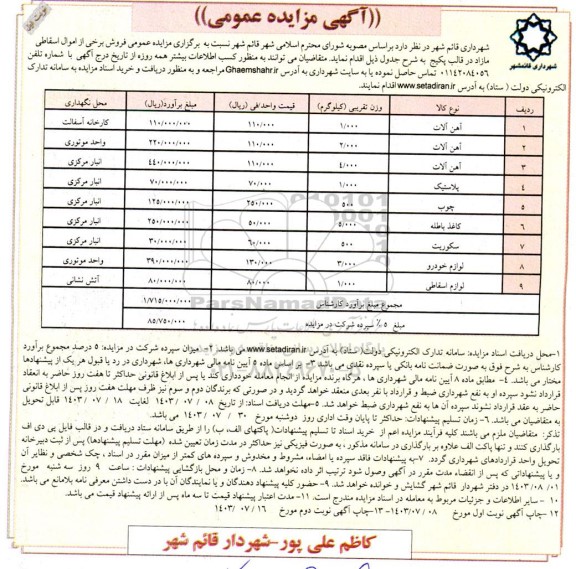 ((آگهی مزایده عمومی))
شهرداری قائمشهر
شهرداری قائم شهر در نظر دارد براساس مصوبه شورای محترم اسلامی شهر قائم شهر نسبت به برگزاری مزایده عمومی فروش برخی از اموال اسقاطی
مازاد در قالب پکیج به شرح جدول ذیل اقدام نماید. متقاضیان می توانند به منظور کسب اطلاعات بیشتر همه روزه از تاریخ درج آگهی با شماره تلفن
۰۱۱۴۲۰۸۴۰۵۶ تماس حاصل نموده یا به سایت شهرداری به آدرس Ghaemshahr.ir مراجعه و به منظور دریافت و خرید اسناد مزایده به سامانه تدارک
الکترونیکی دولت ( ستاد) به آدرس www.setadiran.ir اقدام نمایند.
ردیف نوع کالا وزن تقریبی (کیلوگرم) قیمت واحد/فی (ریال) مبلغ برآورد(ریال) محل نگهداری
۱ آهن آلات ۱/۰۰۰ ۱۱۰/۰۰۰ ۱۱۰/۰۰۰/۰۰۰ کارخانه آسفالت
۲ آهن آلات ۲/۰۰۰ ۱۱۰/۰۰۰ ۲۲۰/۰۰۰/۰۰۰ واحد موتوری
۳ آهن آلات ۴/۰۰۰ ۱۱۰/۰۰۰ ۴۴۰/۰۰۰/۰۰۰ انبار مرکزی
۴ پلاستیک ۱/۰۰۰ ۷۰/۰۰۰ ۷۰/۰۰۰/۰۰۰ انبار مرکزی
۵ چوب ۵۰۰ ۲۵۰/۰۰۰ ۱۲۵/۰۰۰/۰۰۰ انبار مرکزی
۶ کاغذ باطله ۵/۰۰۰ ۵۰/۰۰۰ ۲۵۰/۰۰۰/۰۰۰ انبار مرکزی
۷ سکوریت ۵۰۰ ۶۰/۰۰۰ ۳۰/۰۰۰/۰۰۰ انبار مرکزی
۸ لوازم خودرو ۳/۰۰۰ ۱۳۰/۰۰۰ ۳۹۰/۰۰۰/۰۰۰ واحد موتوری
۹ لوازم اسقاطی ۱/۰۰۰ ۸۰/۰۰۰ ۸۰/۰۰۰/۰۰۰ آتش نشانی
مجموع مبلغ برآورد کارشناس ۱/۷۱۵/۰۰۰/۰۰۰
مبلغ ۵٪ سپرده شرکت در مزایده ۸۵/۷۵۰/۰۰۰
۱-محل دریافت اسناد مزایده: سامانه تدارک الکترونیکی دولت( ستاد) به آدرس www.setadiran.ir می باشد. ۲- میزان سپرده شرکت در مزایده: ۵ درصد مجموع برآورد
کارشناس به شرح فوق به صورت ضمانت نامه بانکی یا سپرده نقدی می باشد. ۳- بر اساس ماده ۵ آیین نامه مالی شهرداری ها، شهرداری در رد یا قبول هر یک از پیشنهادها
مختار می باشد. ۴- مطابق ماده ۸ آیین نامه مالی شهرداری ها ، هرگاه برنده مزایده از انجام معامله خودداری کند یا پس از ابلاغ قانونی حداکثر تا هفت روز حاضر به انعقاد
قرارداد نشود سپرده او به نفع شهرداری ضبط و قرارداد با نفر بعدی منعقد خواهد گردید و در صورتی که برندگان دوم و سوم نیز ظرف مهلت هفت روز پس از ابلاغ قانونی
حاضر به عقد قرارداد نشوند سپرده آن ها به نفع شهرداری ضبط خواهد شد. ۵-مهلت دریافت اسناد: از تاریخ ۰۸ / ۰۷ / ۱۴۰۳ لغایت ۱۸ / ۰۷ / ۱۴۰۳ قابل تحویل
به متقاضیان می باشد. ۶-زمان تسلیم پیشنهادات: حداکثر تا پایان وقت اداری روز دوشنبه مورخ ۳۰ / ۰۷ / ۱۴۰۳ می باشد.
تذکر: متقاضیان ملزم می باشند کلیه فرآیند مزایده اعم از خرید اسناد تا تسلیم پیشنهادات( پاکتهای الف، ب) را از طریق سامانه ستاد دریافت و در قالب فایل پی دی اف
بارگذاری کنند و تنها پاکت الف علاوه بر بارگذاری در سامانه مذکور ، به صورت فیزیکی نیز حداکثر در مدت زمان تعیین شده (مهلت تسلیم پیشنهادها) پس از ثبت دبیرخانه
تحویل واحد قراردادهای شهرداری گردد. ۷-به پیشنهادات فاقد سپرده یا امضاء، مشروط و مخدوش و سپرده های کمتر از میزان مقرر در اسناد ، چک شخصی و نظایر آن
و یا پیشنهاداتی که پس از انقضاء مدت مقرر در آگهی وصول شود ترتیب اثر داده نخواهد شد. ۸- زمان و محل بازگشایی پیشنهادات : ساعت ۹ روز سه شنبه مورخ
۱۴۰۳/۰۸/۰۱ در دفتر شهردار قائم شهر گشایش و خوانده خواهد شد. ۹- حضور کلیه پیشنهاد دهندگان و یا نمایندگان آن با در دست داشتن معرفی نامه بلامانع می باشد.
۱۰ - سایر اطلاعات و جزئیات مربوط به معامله در اسناد مزایده مندرج است. ۱۱- مدت اعتبار پیشنهاد قیمت تا سه ماه پس از ارائه پیشنهاد قیمت می باشد.
۱۲-چاپ آگهی نوبت اول مورخ ۰۸ /۱۴۰۳/۰۷ ۱۳-چاپ آگهی نوبت دوم مورخ ۱۶ / ۰۷ /۱۴۰۳
کاظم علی پور-شهردار قائم شهر